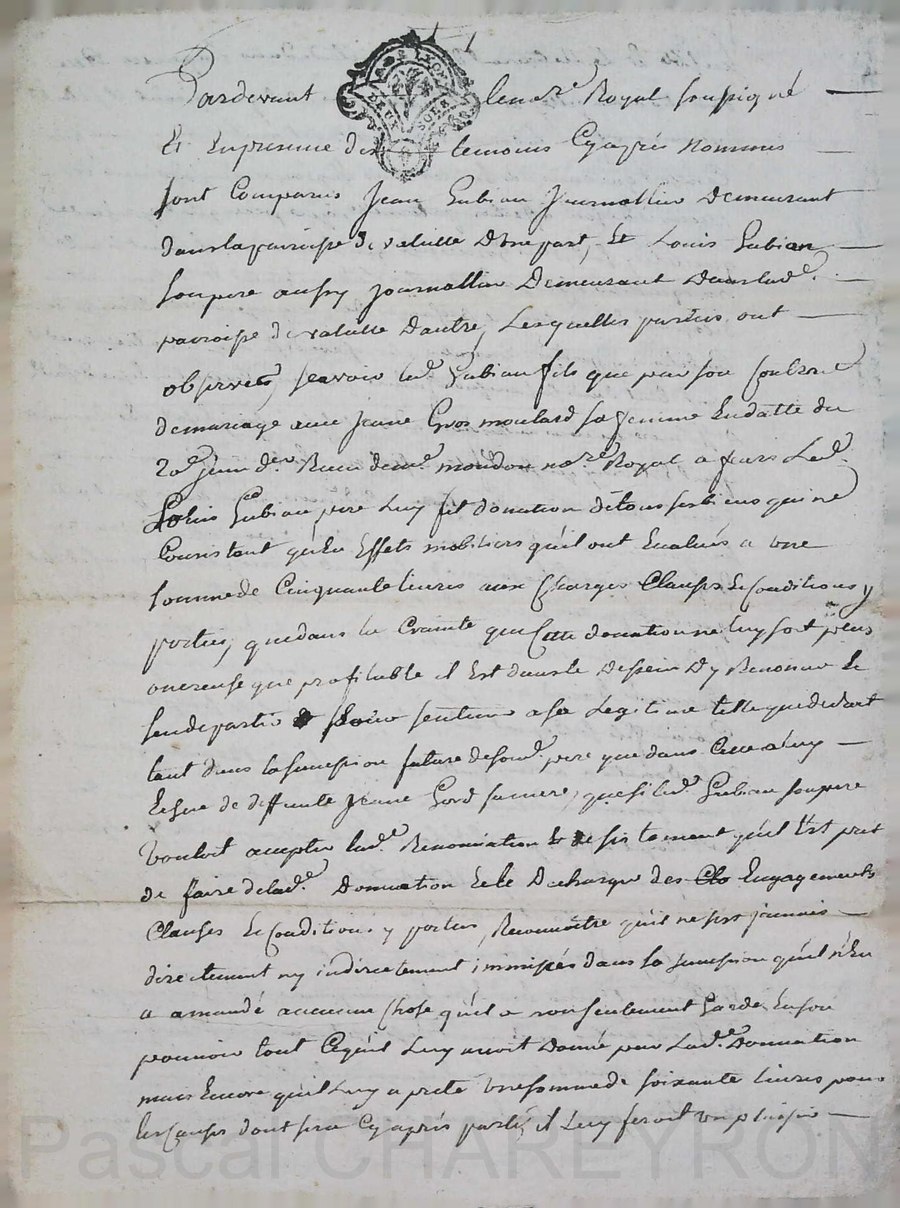 Pardevant le no.re Royal soussigné
DE LYON
DEUX SOLS
Et En presence des temoins Cyaprés Nommés
sont Comparus Jean Gubian Journallier Demeurant
dans la paroisse de valeille D'une part, Et Louis Gubian
son pere aussy Journallier Demeurant Dans lad.e
parroisse de valeille D'autre, Lesquelles parties ont
observés, sçavoir led. Gubian fils que par son Contrat
de mariage avec Jeanne Gros moulard sa femme En datte du
20e juin d.er Recu de me. mondon no.re Royal a feurs Led.
Louis Gubian pere Luy fit donation de tous ses biens qui ne
Consistant qu'En Effets mobiliers qu'il ont Evalués a une
somme de Cinquante livres aux Charges Clauses Et Conditions y
portées, que dans la Crainte que Cette donation ne luy soit plus
onereuse que profitable il Est dans le Dessein D'y Renoncer Et
s'en departir Et sen tenir a sa Legitime telle que de droit
tant dans la succession future de sond. pere que dans Celle a luy
Echue de deffunte Jeanne Gord sa mere, que si led. Gubian son pere
vouloit accepter lad.e Renonciation Et desistement qu'il Est pret
de faire de lad.e Donnation Et le Decharger des Clo Engagements
Clauses Et Conditions y portées, Reconnoitre qu'il ne s'est jamais
directement ny indirectement immissés dans la succession qu'il n'En
a amandé aucune Chose qu'il a non seulement Gardé En son
pouvoir tout Ce qu'il Luy avoit Donné par Lad.e Donnation
mais Encore qu'il Luy a preté une somme de soixante livres pour
les Causes dont sera Cy aprés parlé, il Luy feroit un plaisir
Pascal CHAREYRON